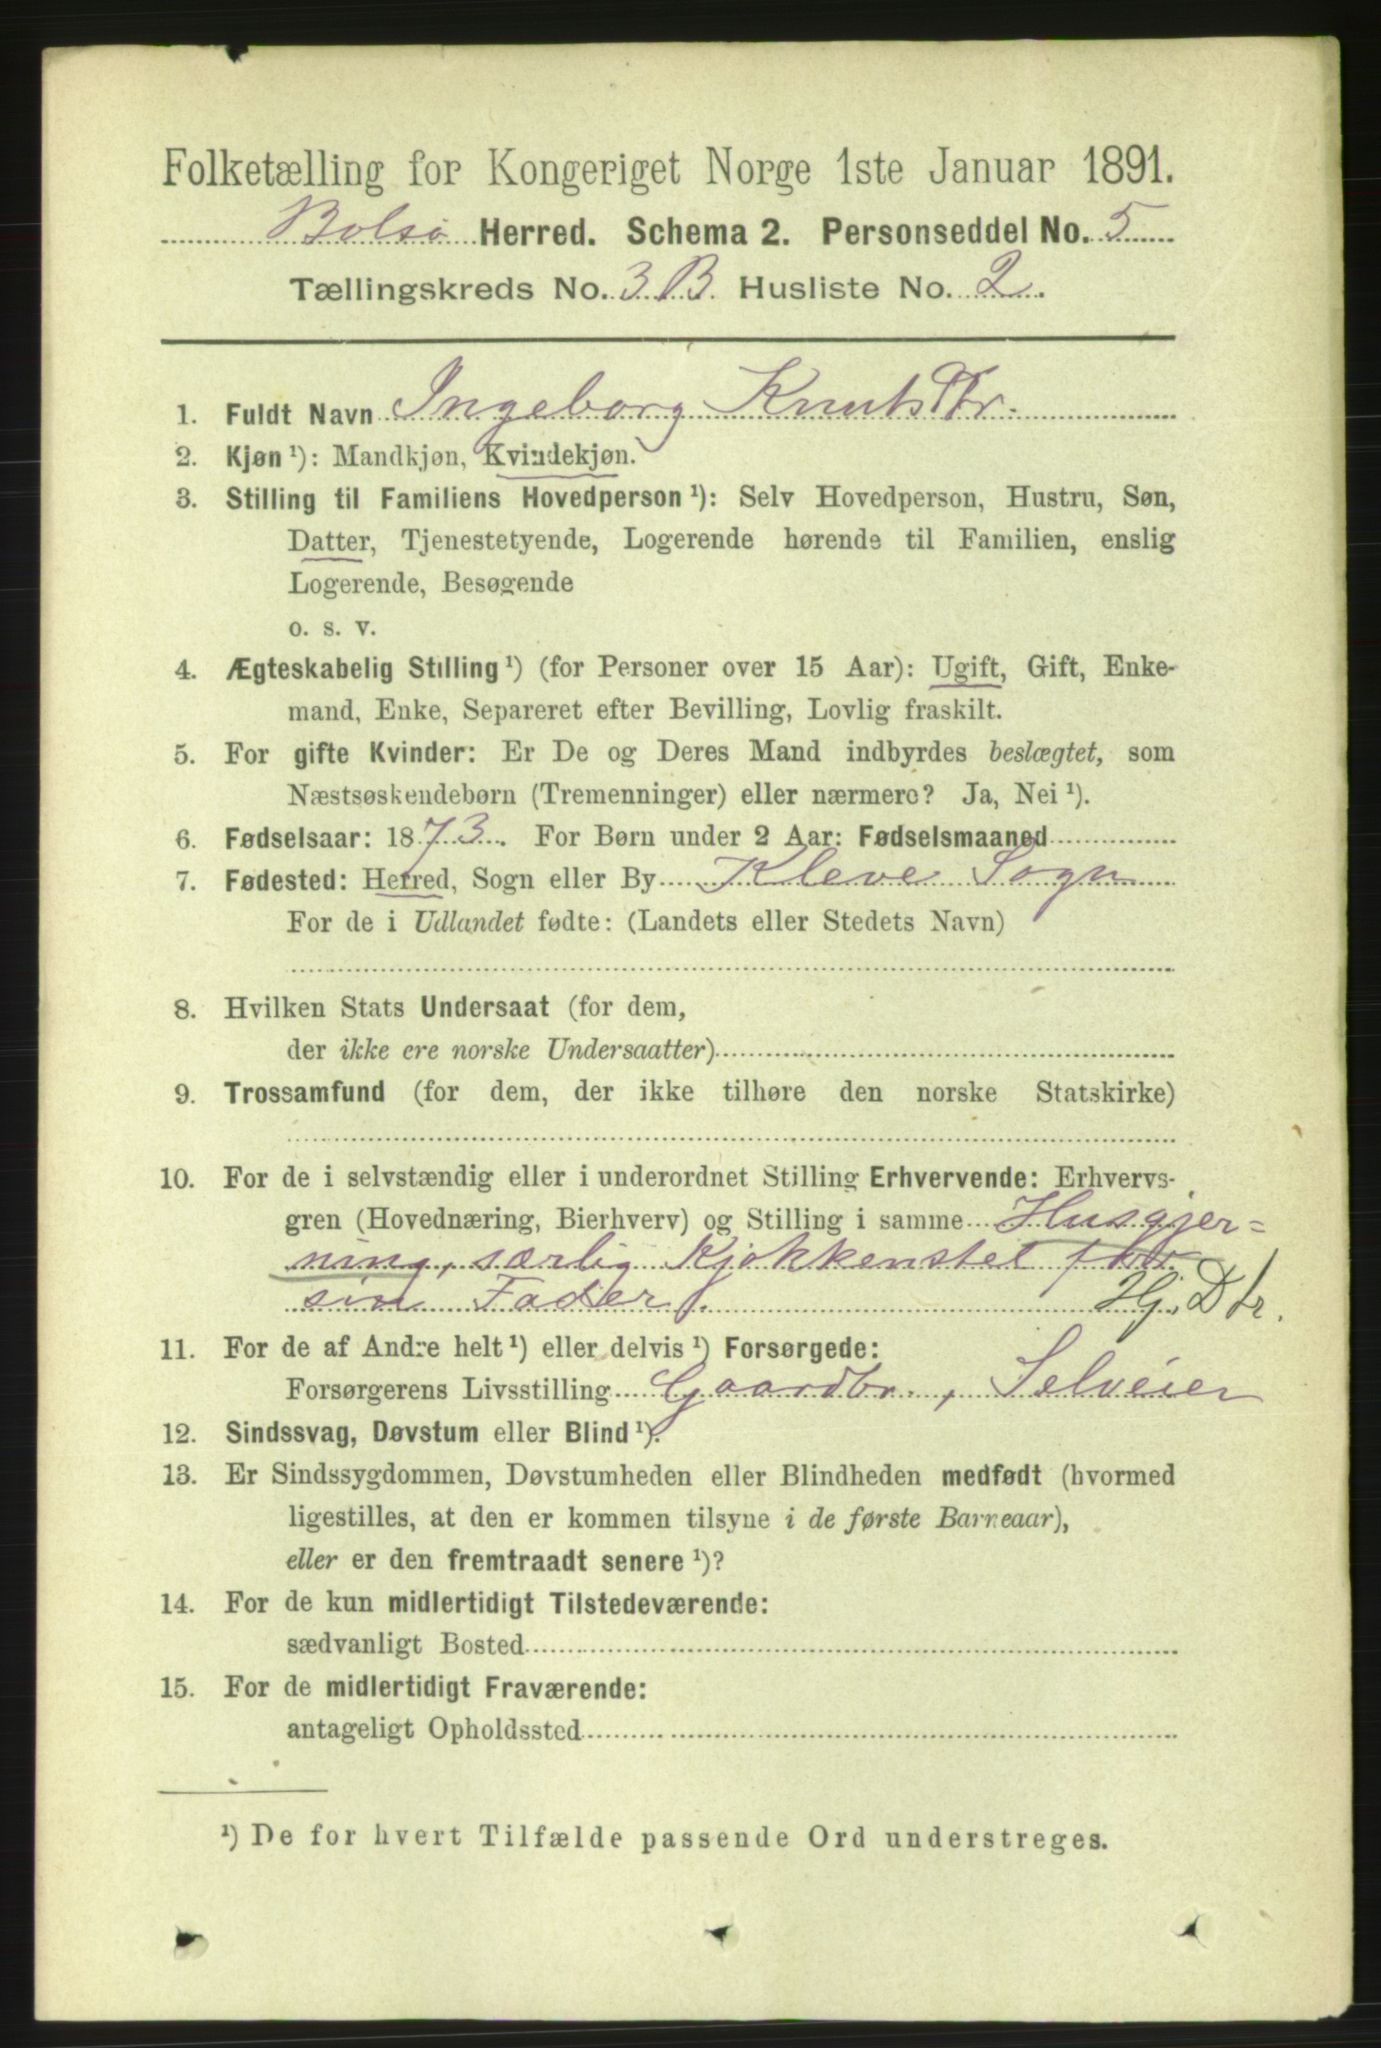 Folketælling for Kongeriget Norge 1ste Januar 1891.
Bolsø Herred. Schema 2. Personseddel No. 5
Tællingskreds No. 3B. Husliste No. 2.
1. Fuldt Navn Ingeborg Knuts Dtr.
2. Kjøn ¹): Mandkjøn, Kvindekjøn.
3. Stilling til Familiens Hovedperson ¹): Selv Hovedperson, Hustru, Søn,
Datter, Tjenestetyende, Logerende hørende til Familien, enslig
Logerende, Besøgende
o. s. v.
4. Ægteskabelig Stilling ¹) (for Personer over 15 Aar): Ugift, Gift, Enke-
mand, Enke, Separeret efter Bevilling, Lovlig fraskilt.
5. For gifte Kvinder: Er De og Deres Mand indbyrdes beslægtet, som
Næstsøskendebørn (Tremenninger) eller nærmere? Ja, Nei ¹).
6. Fødselsaar: 1873. For Børn under 2 Aar: Fødselsmaaned
7. Fødested: Herred, Sogn eller By Kleve Sogn
For de i Udlandet fødte: (Landets eller Stedets Navn)
8. Hvilken Stats Undersaat (for dem,
der ikke ere norske Undersaatter)
9. Trossamfund (for dem, der ikke tilhøre den norske Statskirke)
10. For de i selvstændig eller i underordnet Stilling Erhvervende: Erhvervs-
gren (Hovednæring, Bierhverv) og Stilling i samme Husgjer=
ning, særlig Kjøkkenstel for
sin Fader. Hj. Dtr.
11. For de af Andre helt ¹) eller delvis ¹) Forsørgede:
Forsørgerens Livsstilling Gaardbr., Selveier
12. Sindssvag, Døvstum eller Blind ¹).
13. Er Sindssygdommen, Døvstumheden eller Blindheden medfødt (hvormed
ligestilles, at den er kommen tilsyne i de første Barneaar),
eller er den fremtraadt senere ¹)?
14. For de kun midlertidigt Tilstedeværende:
sædvanligt Bosted
15. For de midlertidigt Fraværende:
antageligt Opholdssted
¹) De for hvert Tilfælde passende Ord understreges.